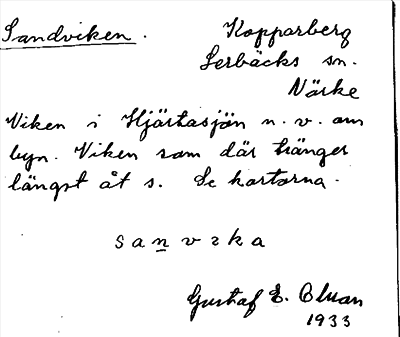 Sandviken. Kopparberg
Lerbäcks sn.
Närke
Viken i Hjärtasjön n. v. om
byn. Viken som där tränger
längst åt s. Se kartorna.
sanveka
Gustaf E. Bluan
1933